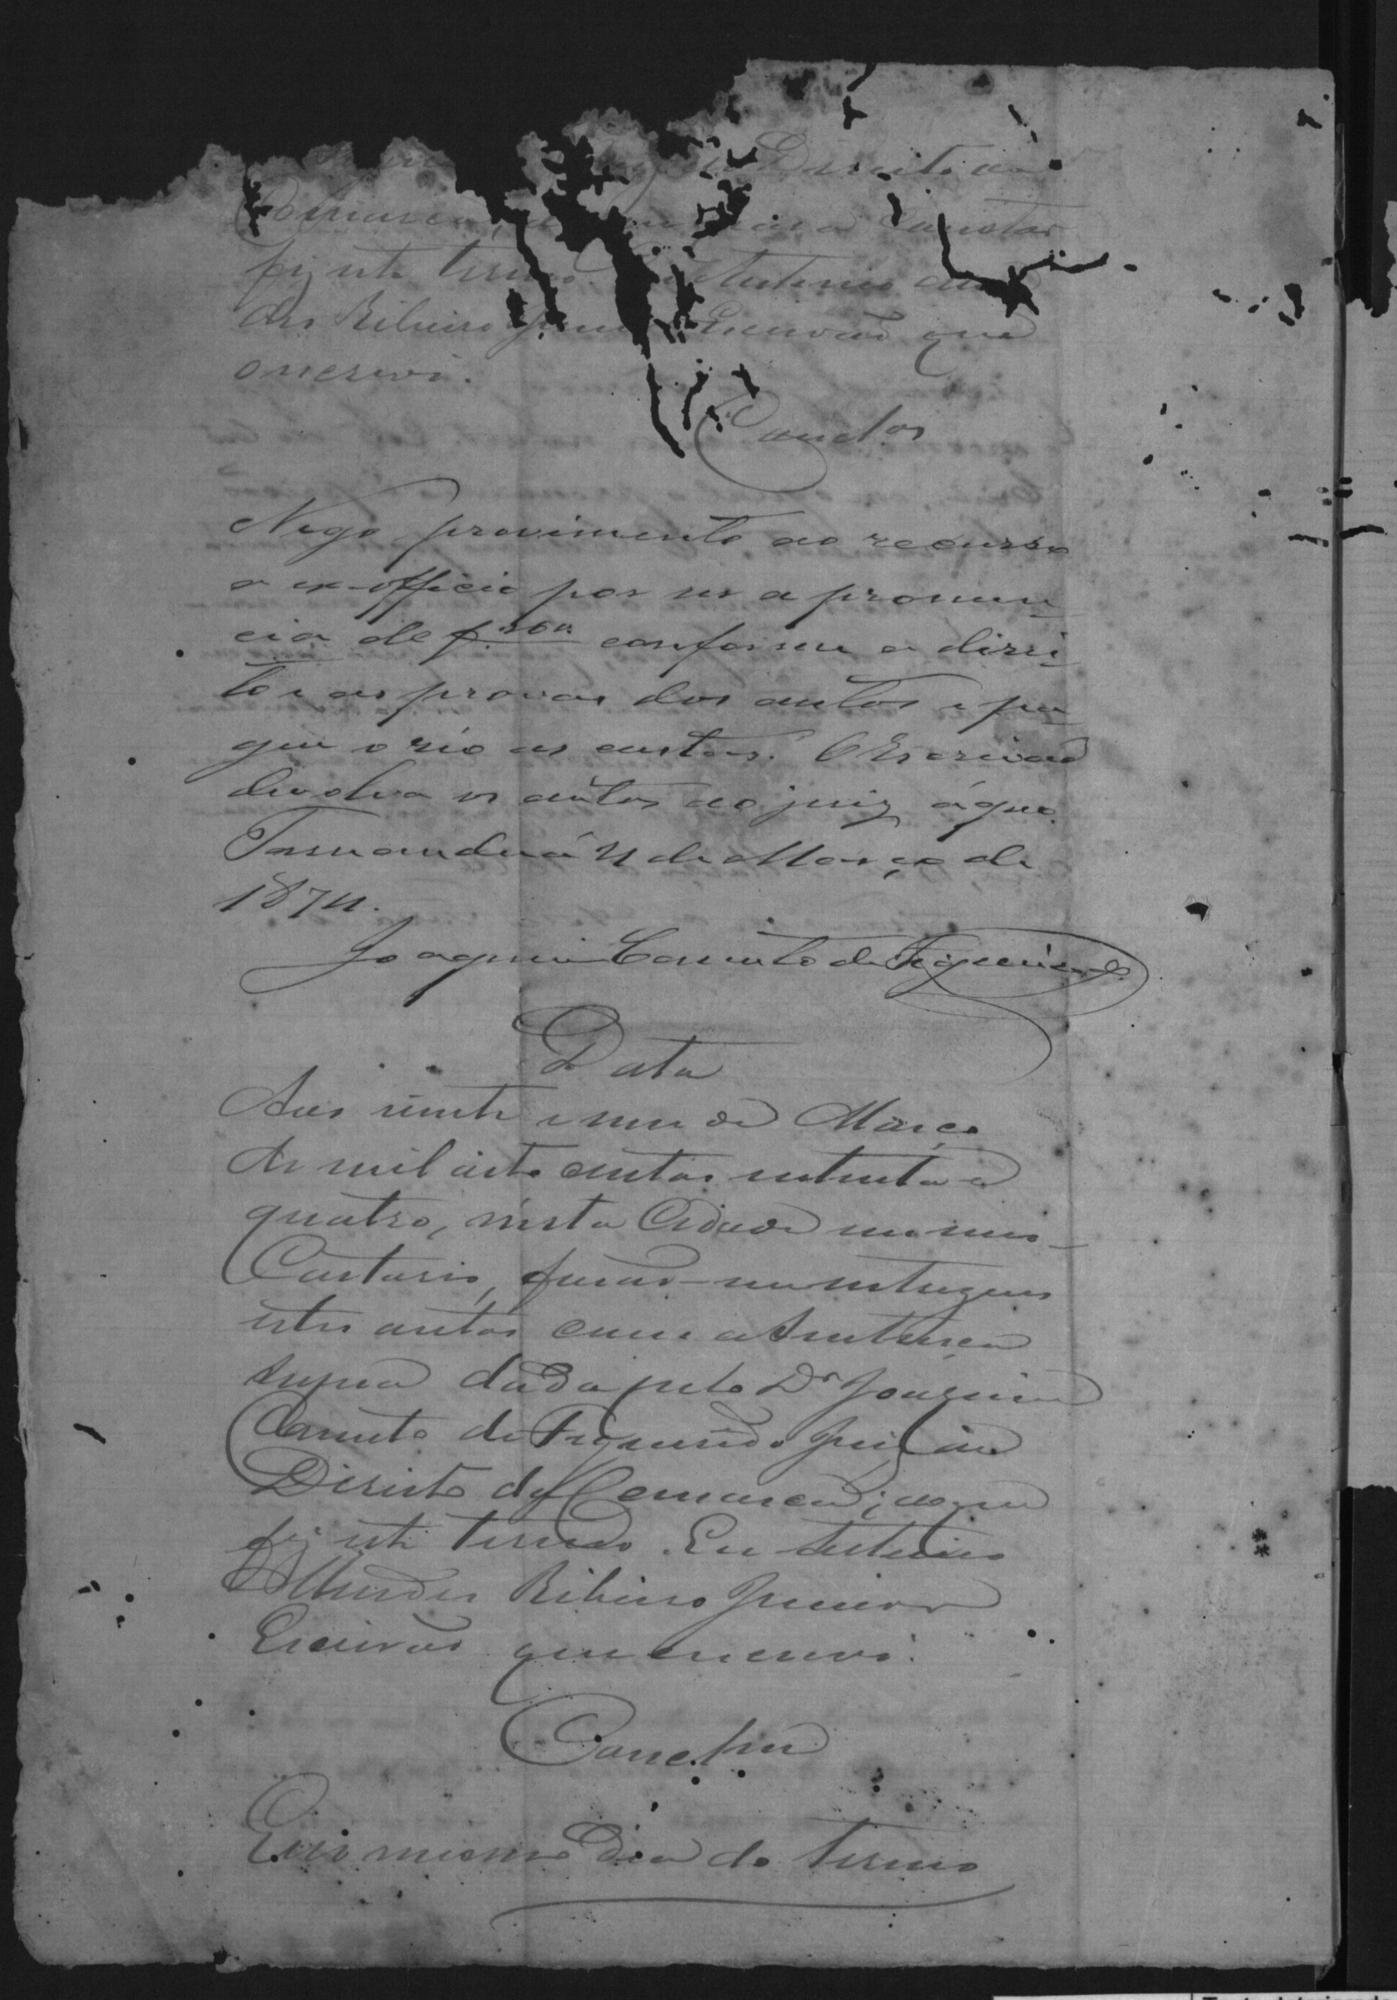 Direito da
Comarca, para constar
fiz este termo. Eu Antonio Men
des Ribeiro Junior Escrivão que
o escrevi.
Conclos
Nego provimento ao recurso
ex-officio por ser a pronun
cia de f. conforme a direi
to e as provas dos autos e pa
gue o réo as custas. O Escrivão
devolva os autos ao juiz áquo.
Tamanduá 21 de Março de
1874.
Joaquim Canuto de Figueiredo
Data
Aos vinte e um de Março
de mil oito centos setenta e
quatro, nesta Cidade em meu
Cartorio, forão-me entregues
estes autos com a Sentença
supra dada pelo Dr Joaquim
Canuto de Figueiredo Juiz de
Direito da Comarca; do que
fiz este termo. Eu Antonio
Mendes Ribeiro Junior
Escrivão que escrevi.
Conclsm
E no mesmo dia do termo